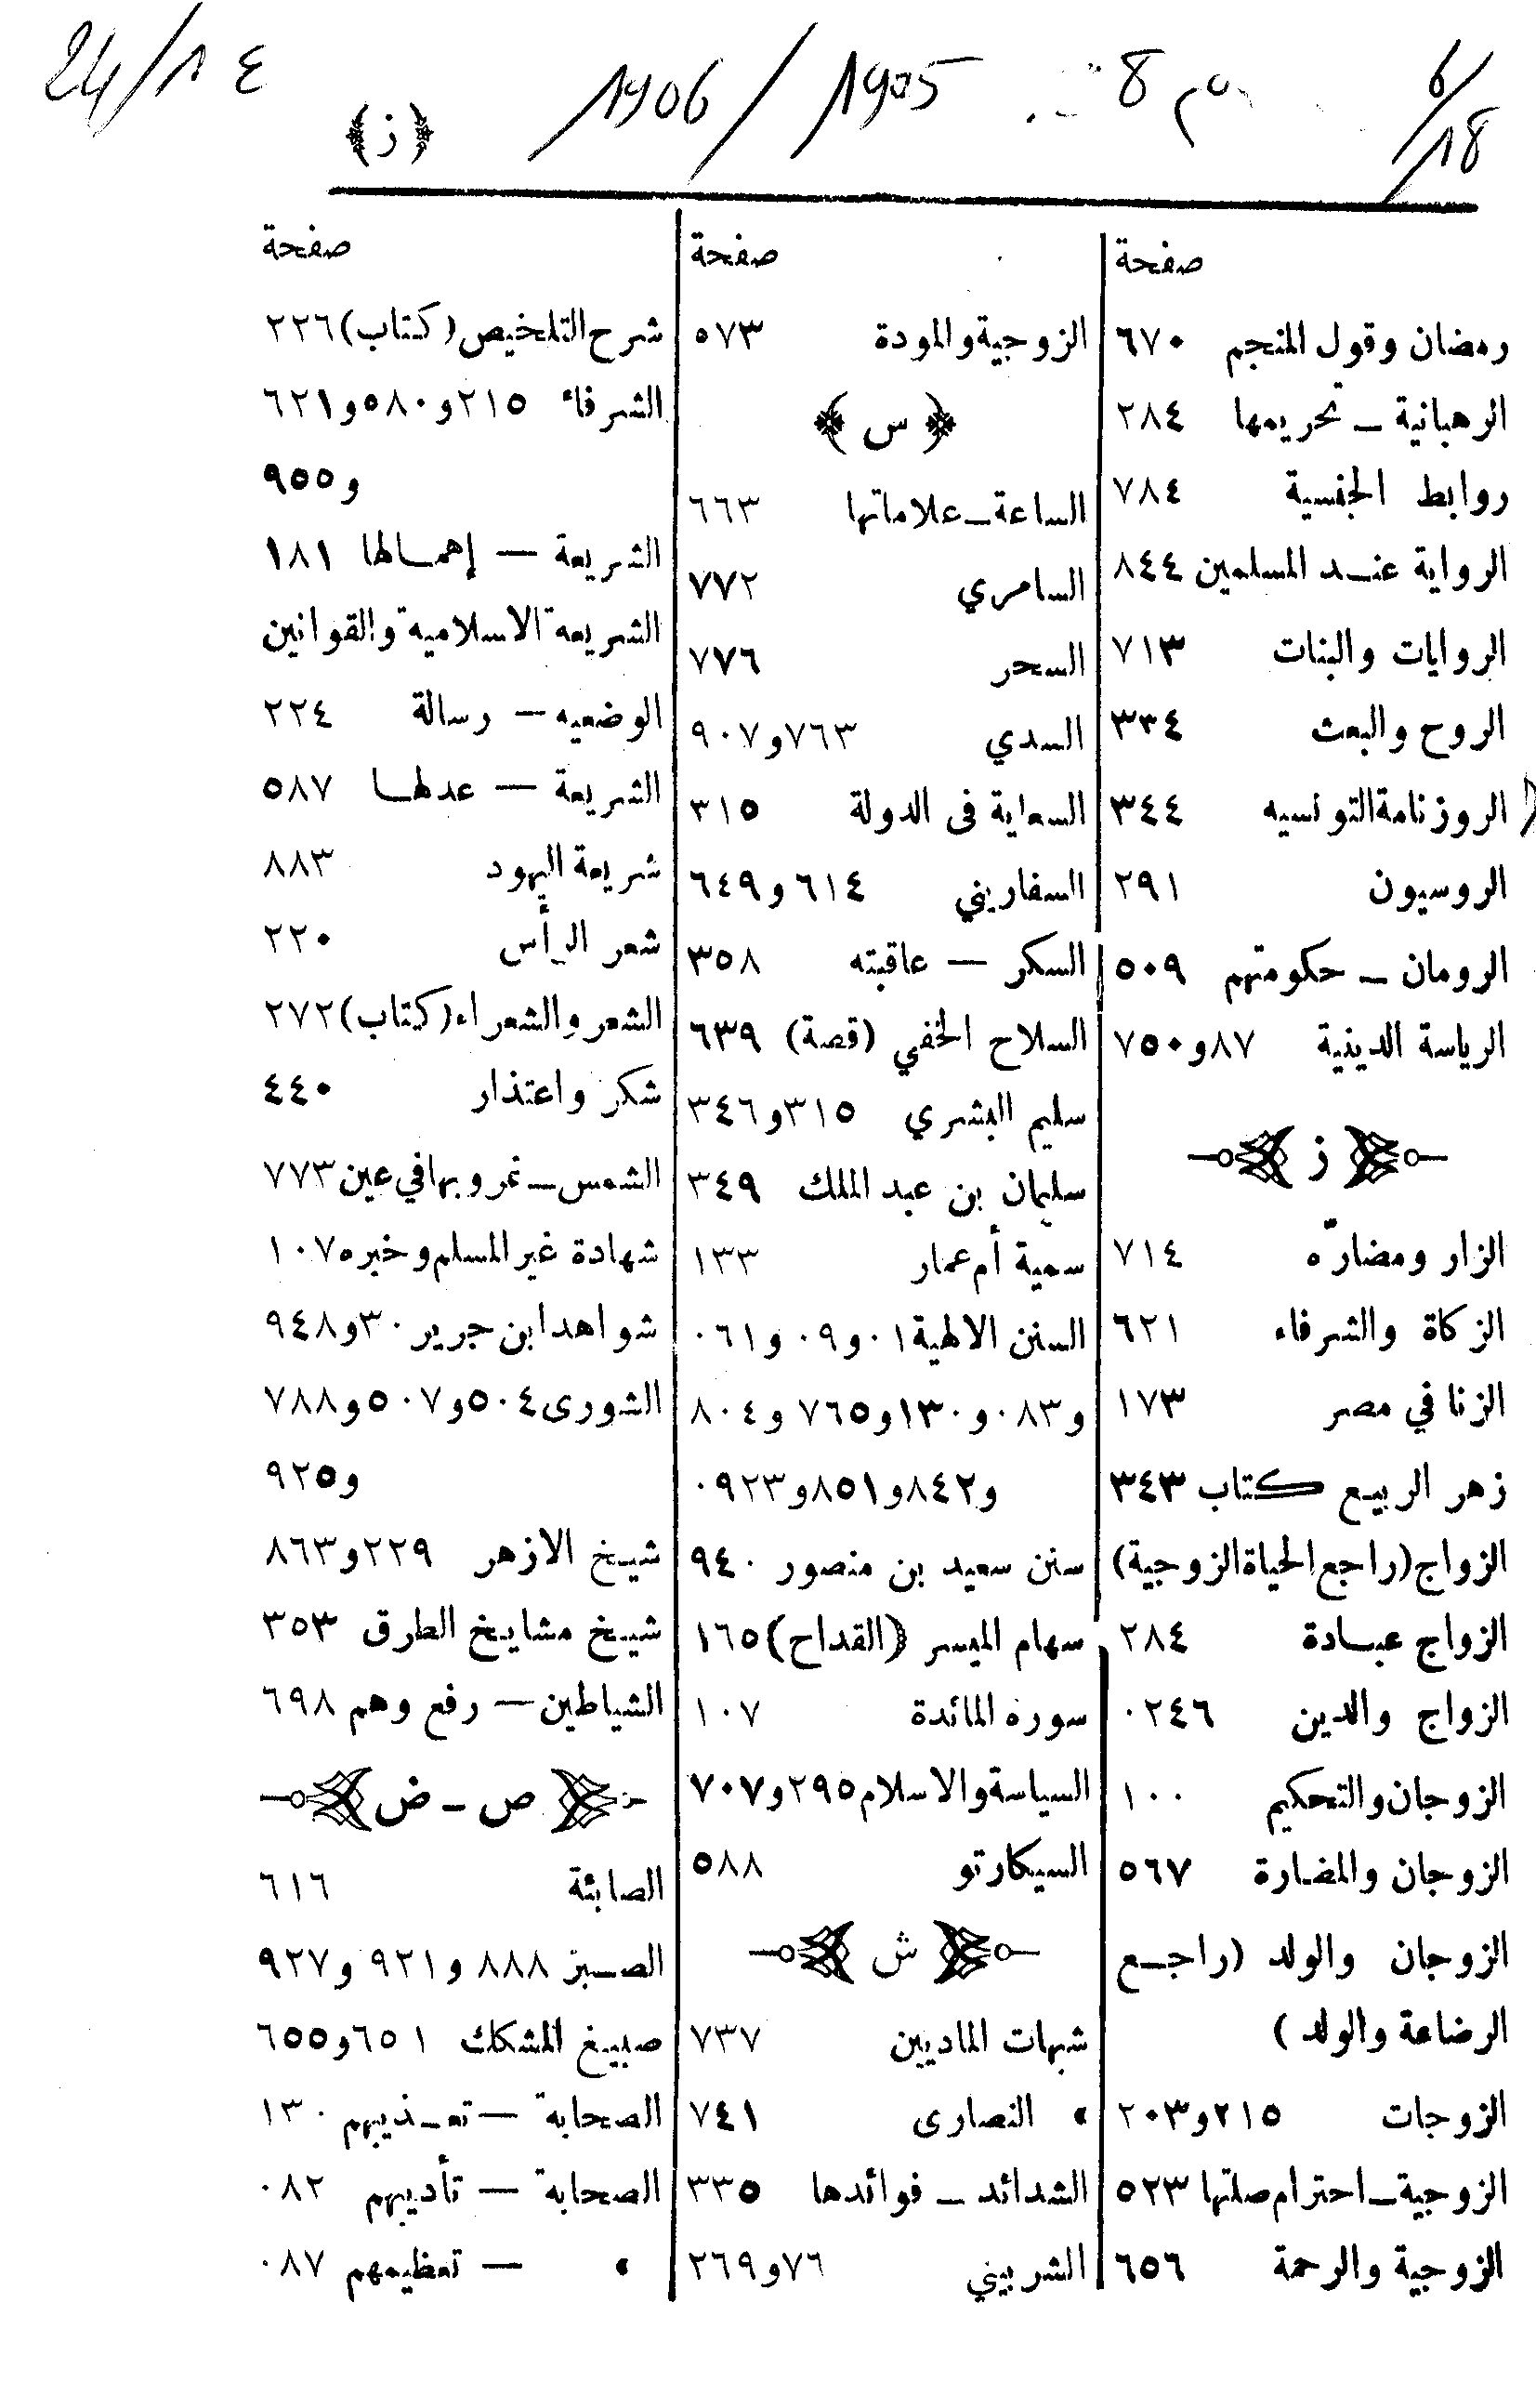 6/18
8
1905 / 1906
24/1 ٤
﴿ ز ﴾
صفحة
رمضان وقول المنجم ٦٧٠
الرهبانية – تحريمها ٢٨٤
روابط الجنسية ٧٨٤
الرواية عند المسلمين ٨٤٤
الروايات والبنات ٧١٣
الروح والبعث ٣٣٤
الروزنامة التونسيه ٣٤٤
الروسيون ٢٩١
الرومان – حكومتهم ٥٠٩
الرياسة الدينية ٨٧ و ٧٥٠
﴿ ز ﴾
الزار ومضارّه ٧١٤
الزكاة والشرفاء ٦٢١
الزنا في مصر ١٧٣
زهر الربيع كتاب ٣٤٣
الزواج (راجع الحياة الزوجية)
الزواج عبادة ٢٨٤
الزواج والدين ٠٢٤٦
الزوجان والتحكيم ١٠٠
الزوجان والمضارة ٥٦٧
الزوجان والولد (راجع
الرضاعة والولد )
الزوجات ٢١٥ و ٢٠٣
الزوجية – احترام صلتها ٥٢٣
الزوجية والرحمة ٦٥٦
صفحة
الزوجية والمودة ٥٧٣
﴿ س ﴾
الساعة – علاماتها ٦٦٣
السامري ٧٧٢
السحر ٧٧٦
السدي ٧٦٣ و ٩٠٧
السعاية فى الدولة ٣١٥
السفاريني ٦١٤ و ٦٤٩
السكر — عاقبته ٣٥٨
السلاح الخفي (قصة) ٦٣٩
سليم البشري ٣١٥ و ٣٤٦
سليمان بن عبد الملك ٣٤٩
سمية أم عمار ١٣٣
السنن الالهية ٠١ و ٠٩ و ٠٦١
و ٠٨٣ و ١٣٠ و ٧٦٥ و ٨٠٤
و ٨٤٢ و ٨٥١ و ٠٩٢٣
سنن سعيد بن منصور ٩٤٠
سهام الميسر (القداح) ١٦٥
سوره المائدة ١٠٧
السياسة والاسلام ٢٩٥ و ٧٠٧
السيكارتو ٥٨٨
﴿ ش ﴾
شبهات الماديين ٧٣٧
» النصارى ٧٤١
الشدائد – فوائدها ٣٣٥
الشربيني ٧٦ و ٢٦٩
صفحة
شرح التلخيص (كتاب) ٢٢٦
الشرفاء ٢١٥ و ٥٨٠ و ٦٢١
و ٩٥٥
الشريعة — إهمالها ١٨١
الشريعة الاسلامية والقوانين
الوضعيه — رسالة ٢٢٤
الشريعة — عدلها ٥٨٧
شريعة اليهود ٨٨٣
شعر الرأس ٢٢٠
الشعر والشعراء (كتاب) ٢٧٢
شكر واعتذار ٤٤٠
الشمس – غروبها في عين ٧٧٣
شهادة غير المسلم وخبره ١٠٧
شواهد ابن جرير ٣٠ و ٩٤٨
الشورى ٥٠٤ و ٥٠٧ و ٧٨٨
و ٩٢٥
شيخ الازهر ٢٢٩ و ٨٦٣
شيخ مشايخ الطرق ٣٥٣
الشياطين — رفع وهم ٦٩٨
﴿ ص – ض ﴾
الصابئة ٦١٦
الصبر ٨٨٨ و ٩٢١ و ٩٢٧
صبيغ المشكك ٦٥١ و ٦٥٥
الصحابة — تعذيبهم ١٣٠
الصحابة — تأديبهم ٠٨٢
» — تعظيمهم ٠٨٧